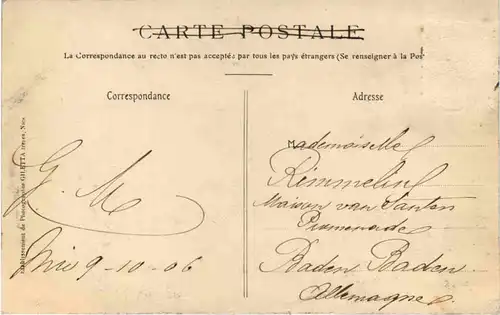 CARTE POSTALE
La Correspondance au recto n'est pas acceptée par tous les pays étrangers (Se renseigner à la Pos
Correspondance
Adresse
Etablissement de Photographie GILETTA frères, Nice
G. M
Nice 9-10-06
Mademoiselle
Rimmelin
Maison van Santen
Promenade
Baden Baden
Allemagne